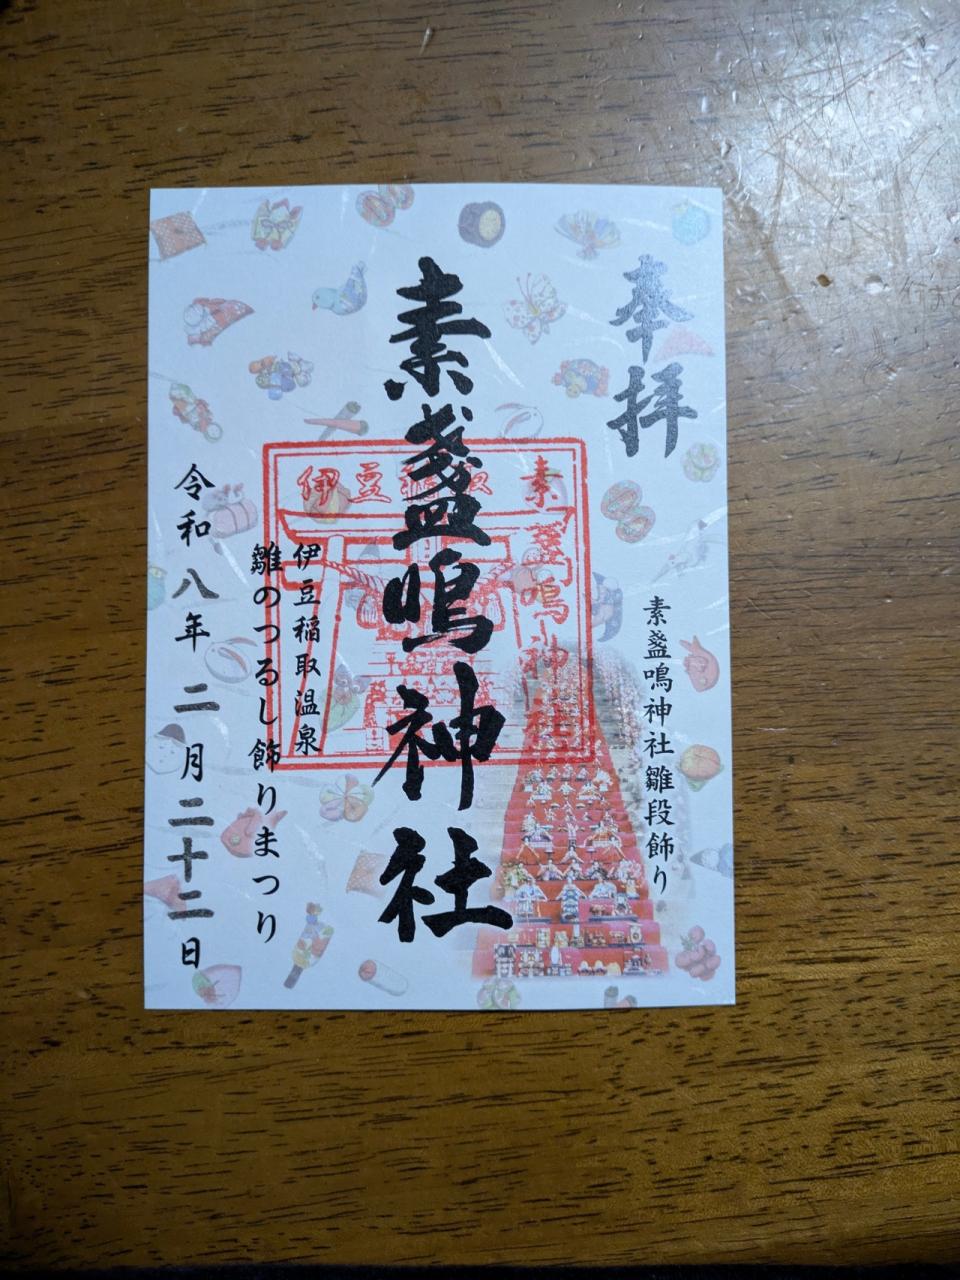 奉拝
素盞鳴神社雛段飾り
素盞鳴神社
伊豆稲取
素盞鳴神社
伊豆稲取温泉
雛のつるし飾りまつり
令和八年二月二十二日